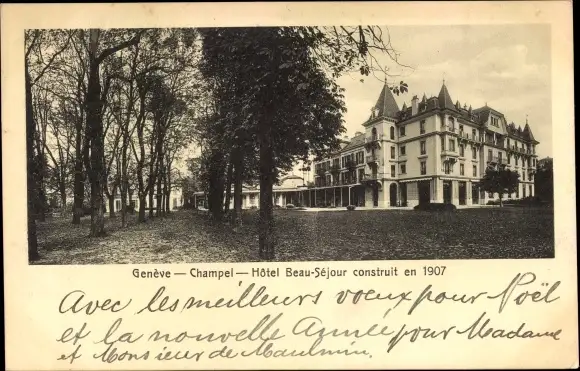 Genève — Champel — Hôtel Beau-Séjour construit en 1907
Avec les meilleurs voeux pour Noël
et la nouvelle Année, pour Madame
et Monsieur de Maulmin.